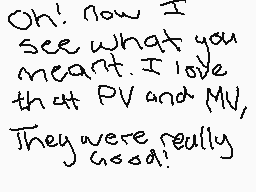 Oh! now I
see what you
meant. I love
that PV and MV,
They were really
Good!